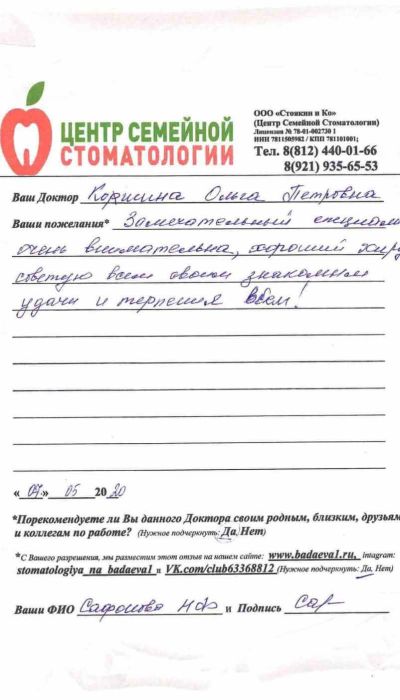 ЦЕНТР СЕМЕЙНОЙ
СТОМАТОЛОГИИ
ООО «Стоякин и Ко»
(Центр Семейной Стоматологии)
Лицензия № 78-01-002730 1
ИНН 7811505982 / КПП 781101001;
Тел. 8(812) 440-01-66
8(921) 935-65-53
Ваш Доктор Коршина Ольга Петровна
Ваши пожелания* Замечательный специали
очень внимательна, хороший хиру
советую всем своим знакомым
удачи и терпения Всем!
«07» 05 2020
*Порекомендуете ли Вы данного Доктора своим родным, близким, друзьям
и коллегам по работе? (Нужное подчеркнуть: Да, Нет)
*С Вашего разрешения, мы разместим этот отзыв на нашем сайте: www.badaeva1.ru, intagram:
stomatologiya_na_badaeva1 и VK.com/club63368812 (Нужное подчеркнуть: Да, Нет)
Ваши ФИО и Подпись